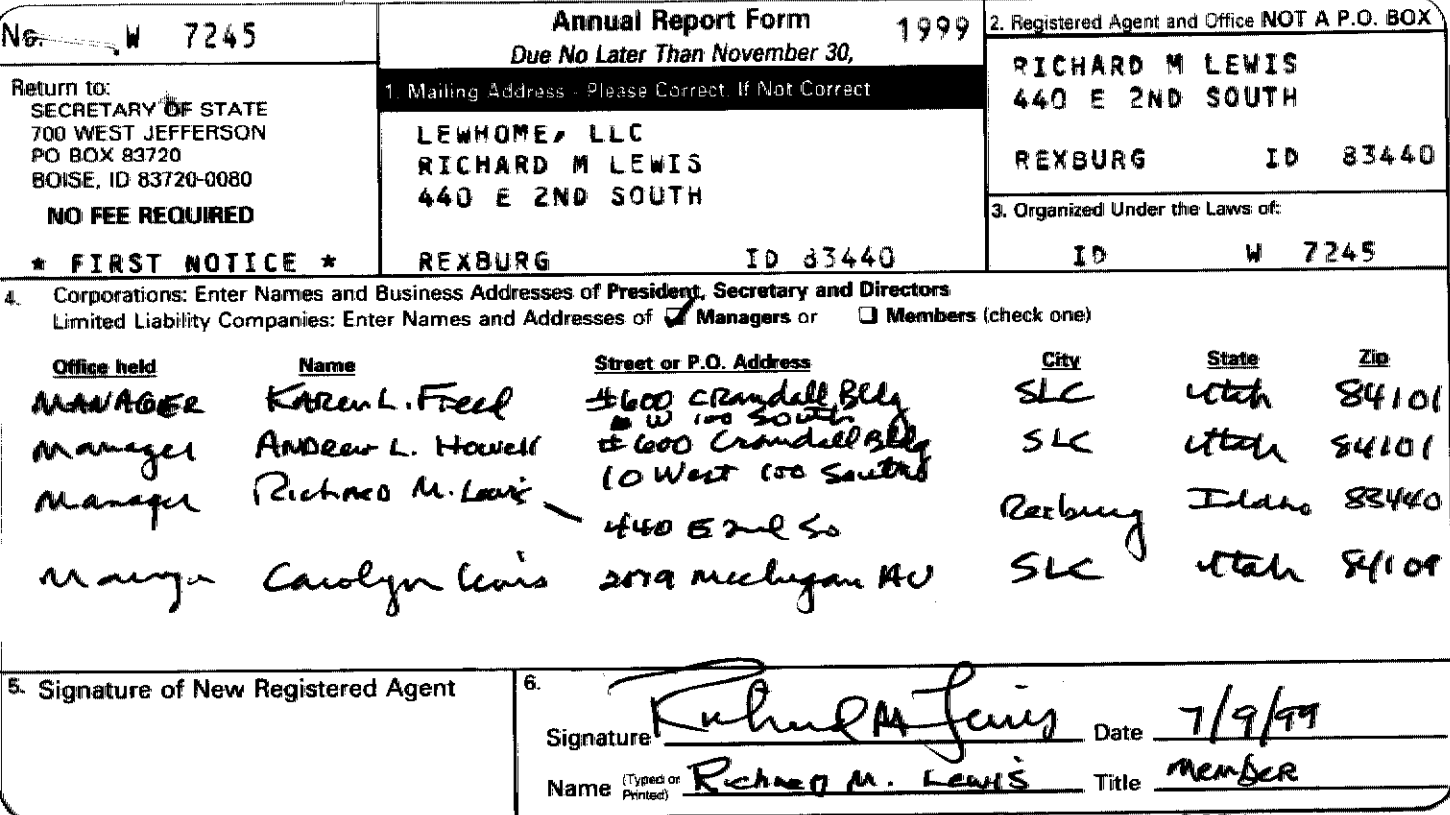 No. W 7245
Annual Report Form 1999
Due No Later Than November 30,
Return to:
SECRETARY OF STATE
700 WEST JEFFERSON
PO BOX 83720
BOISE, ID 83720-0080
NO FEE REQUIRED
* FIRST NOTICE *
1. Mailing Address - Please Correct, If Not Correct
LEWHOME, LLC
RICHARD M LEWIS
440 E 2ND SOUTH
REXBURG ID 83440
2. Registered Agent and Office NOT A P.O. BOX
RICHARD M LEWIS
440 E 2ND SOUTH
REXBURG ID 83440
3. Organized Under the Laws of:
ID W 7245
4. Corporations: Enter Names and Business Addresses of President, Secretary and Directors
Limited Liability Companies: Enter Names and Addresses of Managers or Members (check one)
Office held Name Street or P.O. Address City State Zip
MANAGER Karen L. Freed #600 Crandall Bldg SLC Utah 84101
W 100 South
Manager Andrew L. Howell #600 Crandall Bldg SLC Utah 84101
10 West 100 South
Manager Richard M. Lewis 440 E 2nd So Rexburg Idaho 83440
Manager Carolyn Lewis Michigan Av SLC Utah
5. Signature of New Registered Agent
6.
Signature Richard M Lewis Date 7/9/99
Name (Typed or Printed) Richard M. Lewis Title Member